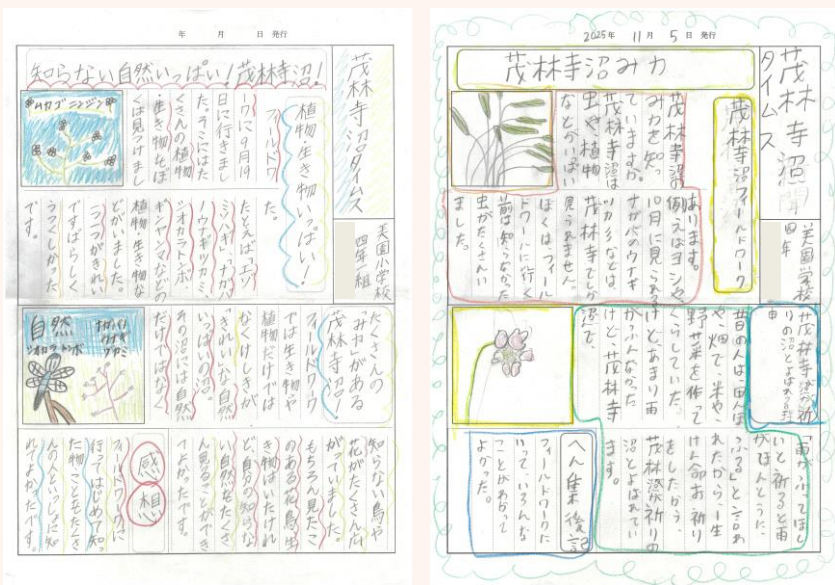 年 月 日 発行
茂林寺沼タイムス
美園小学校
四年一組
知らない自然いっぱい!茂林寺沼!
植物・生き物いっぱい!
フィールドワ
ークに9月19
日に行きまし
た。そこにはた
くさんの植物
・生き物をぼ
くは見つけまし
た。
たとえば、エゾ
ミソハギ、ナガバ
ノウナギツカミ、
シオカラトンボ
ギンヤンマなどの
植物・生き物な
どがいました。
ランがきれい
ですばらしく
うつくしかった
です。
ムカゴニンジン
たくさんの
「みカ」がある
茂林寺沼!
フィールドワーク
では生き物や
植物だけでは
なくけしきが
きれいな自然
いっぱいの沼。
その沼には自然
だけではなく
自然
シオカラトンボ
知らない鳥や
花がたくさん広
がっていました。
もちろん見たこ
のある花、鳥、生
き物はいたけれ
ど、自分の知らな
い自然をたくさ
ん見ることができ
てよかったです。
感想
フィールドワークに
行ってはじめて知っ
た物こともたくさ
んの人といっしょに知
れてよかったです。
2025年 11月 5日 発行
茂林寺沼
タイムス
美園小学校
四年
茂林寺沼みカ
茂林寺沼フィールドワーク
茂林寺沼の
みカを知っ
ていますか。
茂林寺沼は
虫や植物
などがいっぱい
あります。
例えばヨシや、
10月に見られる
ナガバのウナギ
ツカミなどは、
茂林寺でしか
見られません。
ぼくは、フィール
ドワークに行く
前は知らなかった
虫がたくさんい
ました。
茂林寺沼が祈
りの沼とよばれる理
由
昔の人は、田んぼ
や、畑で、米や、
野菜を作って
くらしていた。
けど、あまり雨
がふんなかった
けど、茂林寺
沼で、
「雨がふってほし
いと祈ると雨
がほんとうに、
ふる」と言わ
れたから一生
けん命お祈り
をしたから、
茂林寺沼が祈りの
沼とよばれてい
ます。
へん集後記
フィールドワークに
いって、いろんな
ことがわかって
よかった。